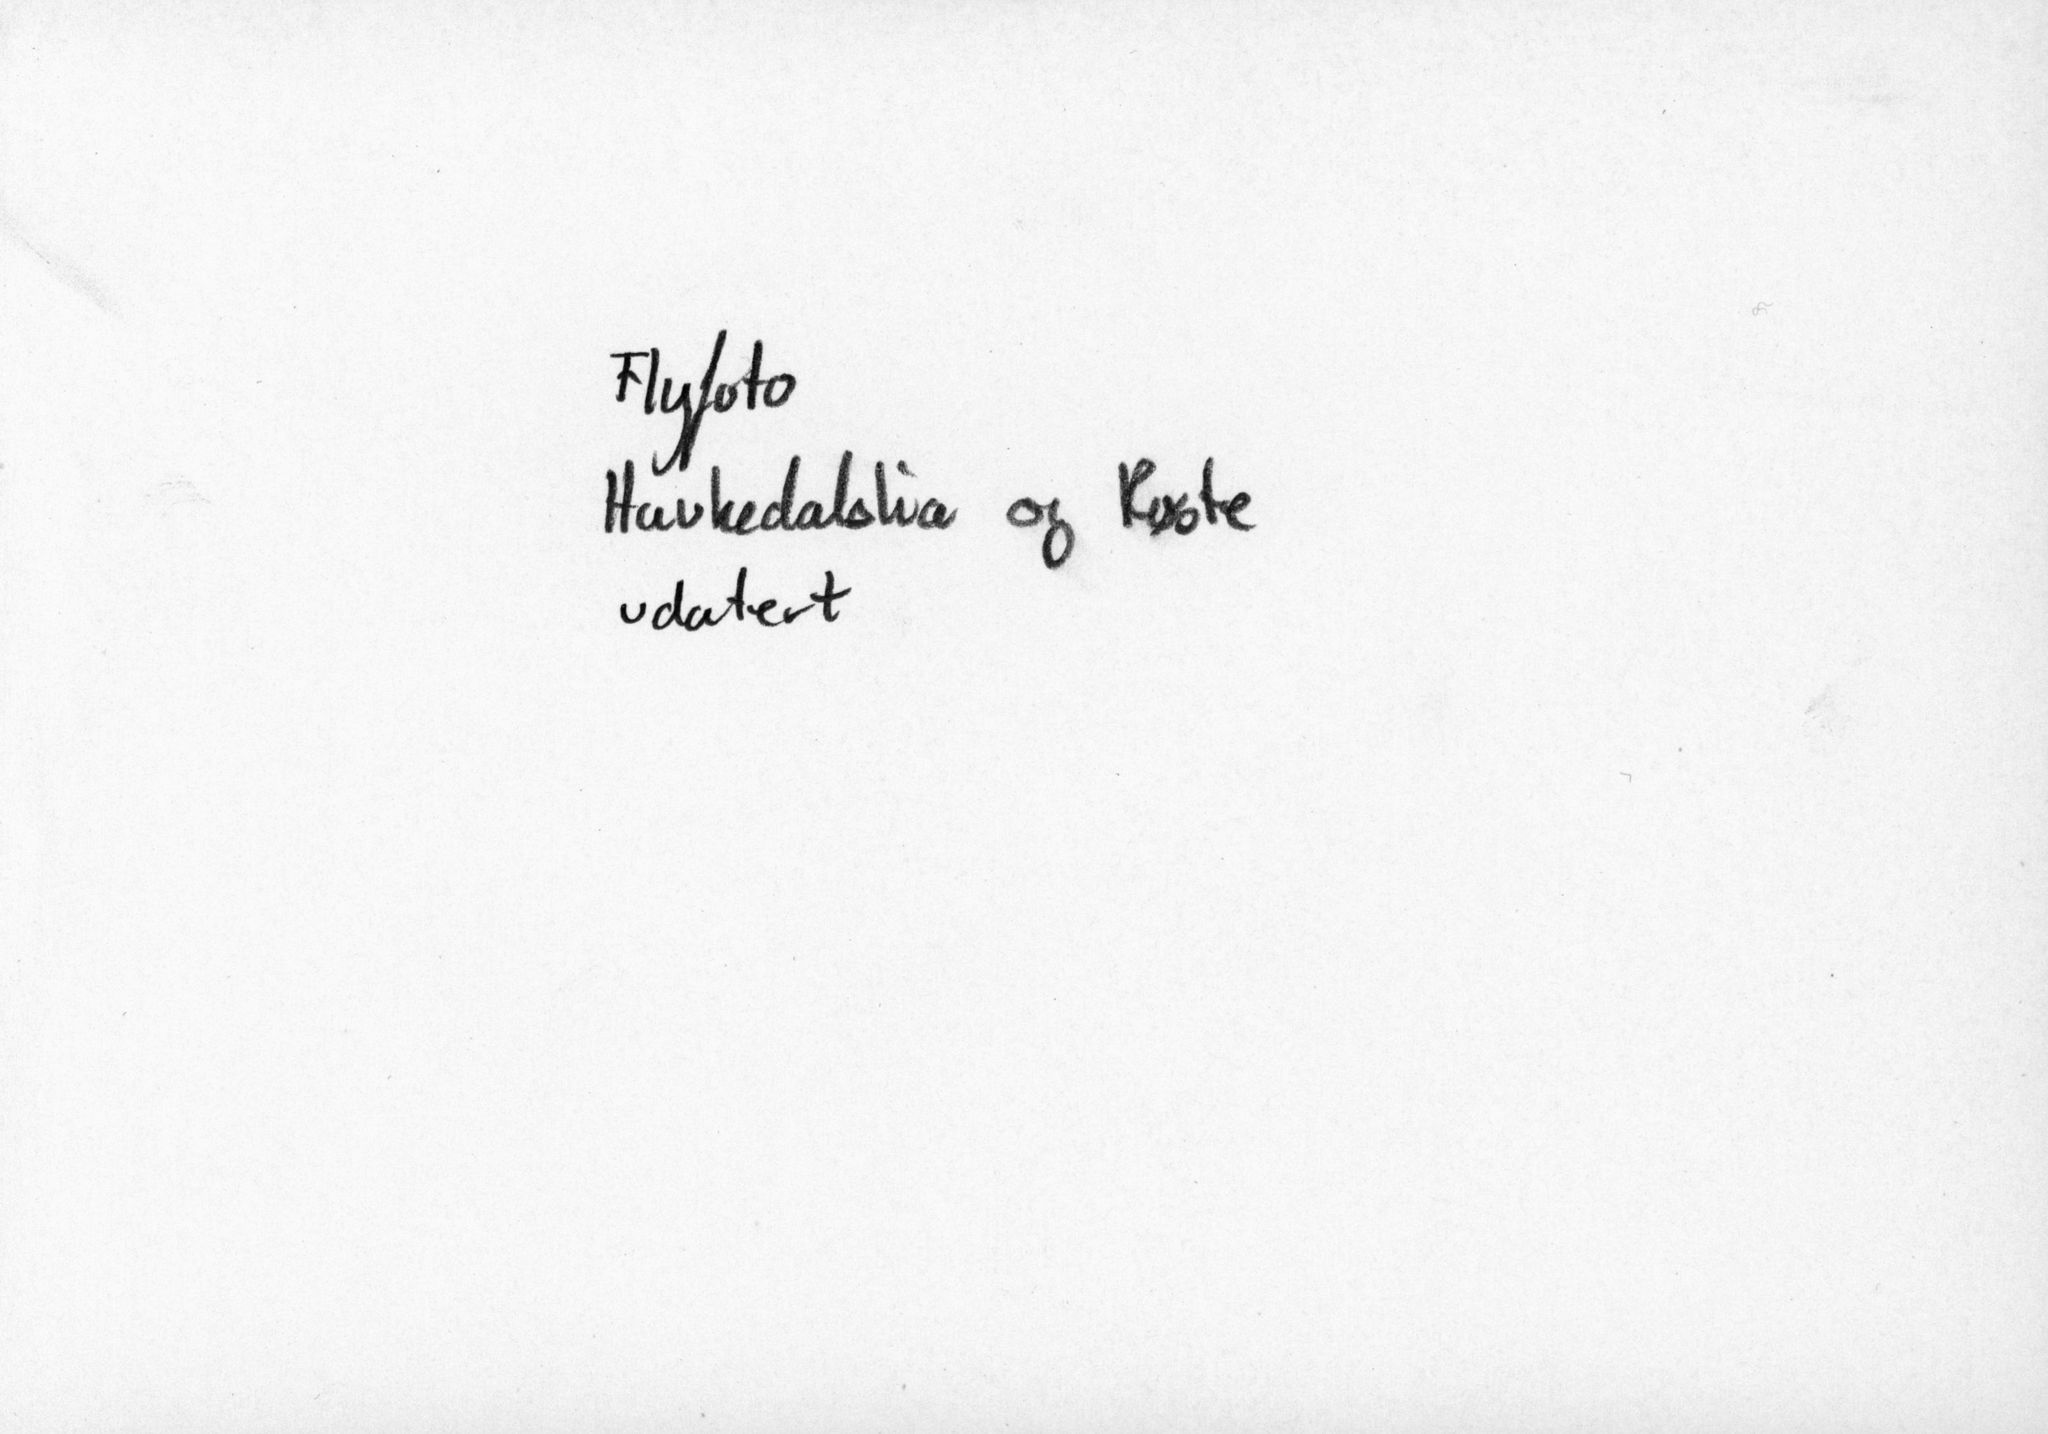 Flyfoto
Haukedalslia og Røste
udatert